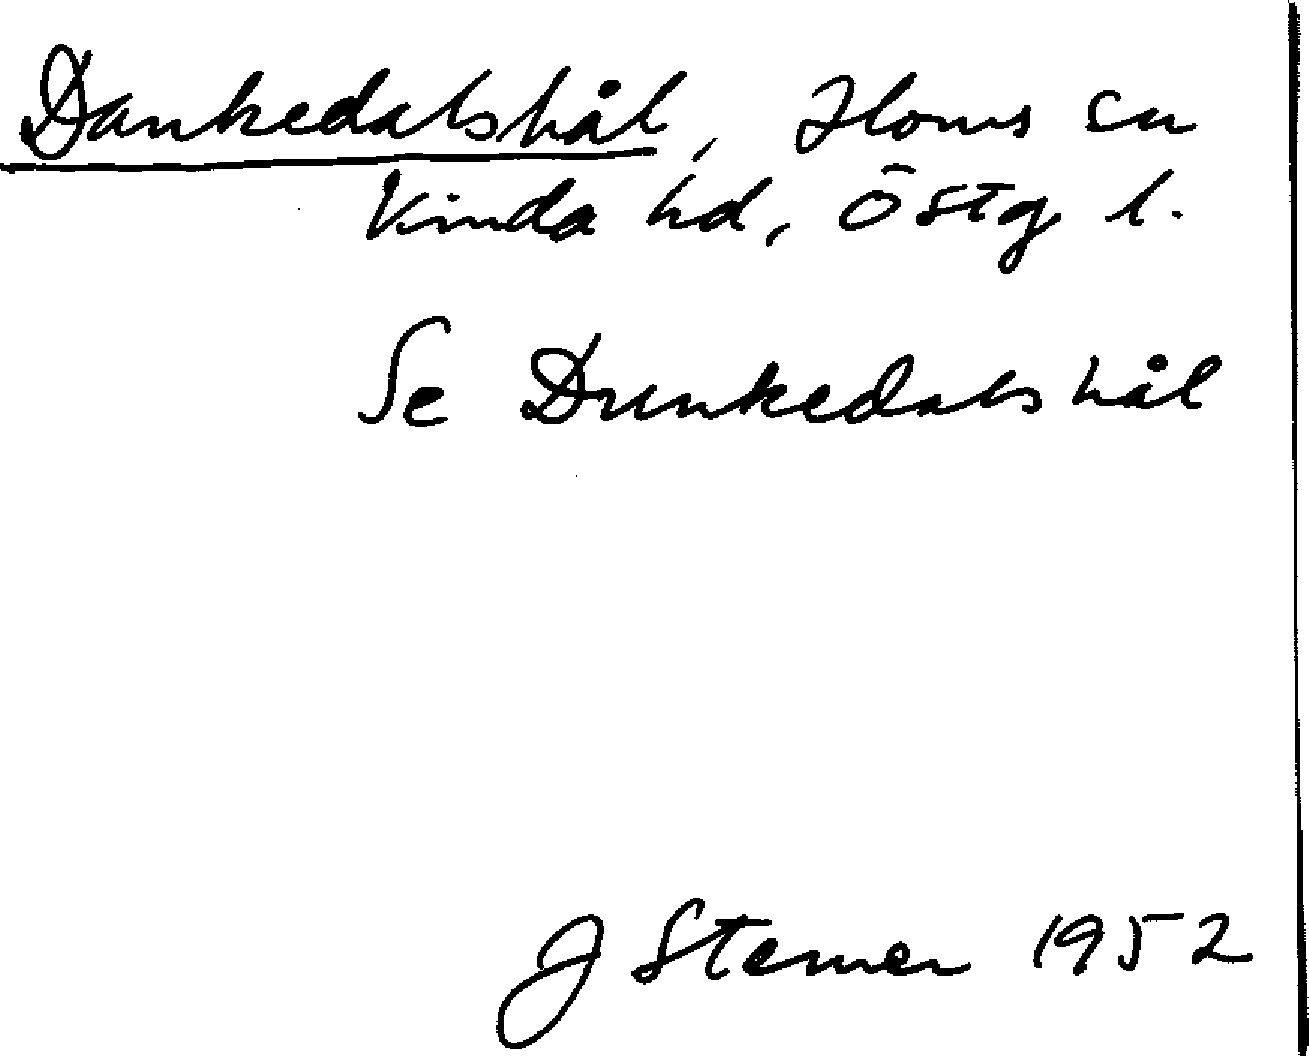 Dankedalshål, Horns sn
Kinda hd, Östg l.
Se Dunkedalshål
J Sterner 1952